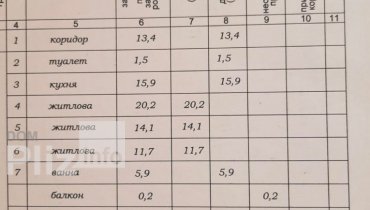 4 5 6 7 8 9 10 11
1 коридор 13,4 13,4
2 туалет 1,5 1,5
3 кухня 15,9 15,9
4 житлова 20,2 20,2
5 житлова 14,1 14,1
6 житлова 11,7 11,7
7 ванна 5,9 5,9
балкон 0,2 0,2
DOM
Pliz info